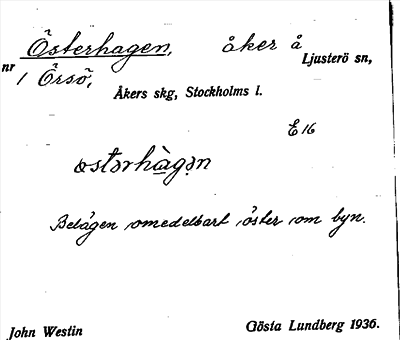 Österhagen, åker å Ljusterö sn,
nr 1 Örsö,
Åkers skg, Stockholms l.
E 16
østərhàgən
Belägen omedelbart öster om byn.
John Westin Gösta Lundberg 1936.